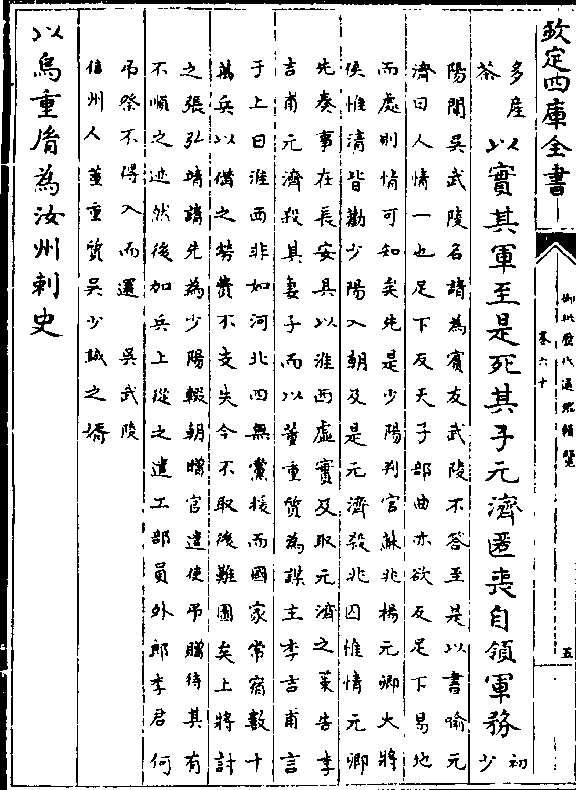 欽定四庫全書
御批歷代通鑑輯覽
卷六十
五
多產
茶
以實其軍至是死其子元濟匿喪自領軍務
初
少
陽聞吳武陵名請為賓友武陵不答至是以書喻元
濟曰人情一也足下反天子部曲亦欲反足下易地
而處則情可知矣先是少陽判官蘇兆楊元卿大將
侯惟清皆勸少陽入朝及是元濟殺兆囚惟清元卿
先奏事在長安具以淮西虛實及取元濟之策告李
吉甫元濟殺其妻子而以董重質為謀主李吉甫言
于上曰淮西非如河北四無黨援而國家常宿數十
萬兵以備之勞費不支失今不取後難圖矣上將討
之張弘靖請先為少陽輟朝贈官遣使弔贈待其有
不順之迹然後加兵上從之遣工部員外郎李君何
弔祭不得入而還 吳武陵
信州人 董重質吳少誠之壻
以烏重𦙍為汝州刺史